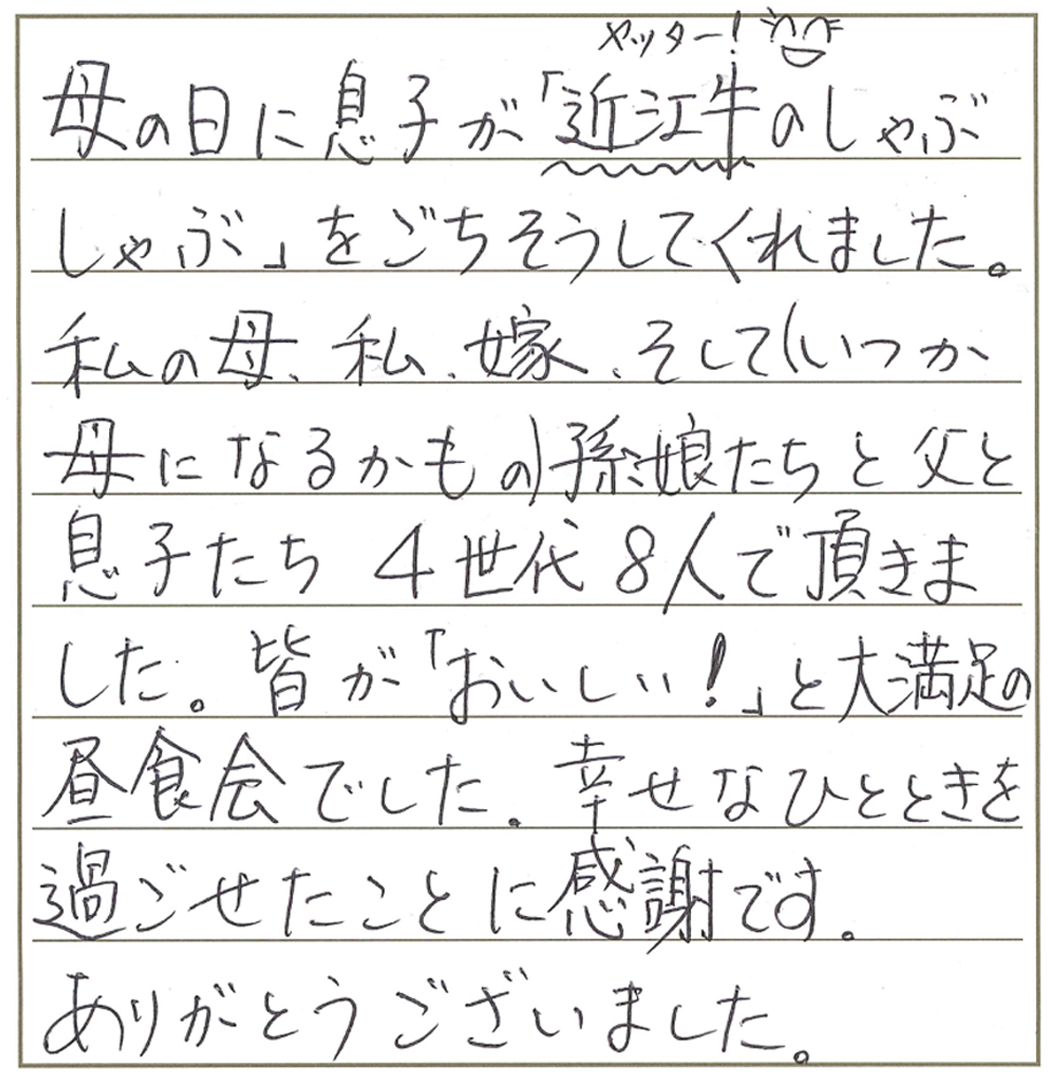 ヤッター!
母の日に息子が「近江牛のしゃぶ
しゃぶ」をごちそうしてくれました。
私の母、私、嫁、そして(いつか
母になるかもの)孫娘たちと父と
息子たち 4世代8人で頂きま
した。皆が「おいしい!」と大満足の
昼食会でした。幸せなひとときを
過ごせたことに感謝です。
ありがとうございました。